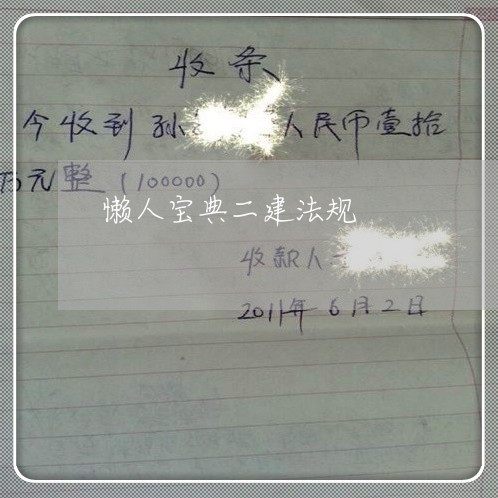 收条
今收到孙 人民币壹拾
万元整（100000）
懒人宝典二建法规
收款人
2011年6月2日